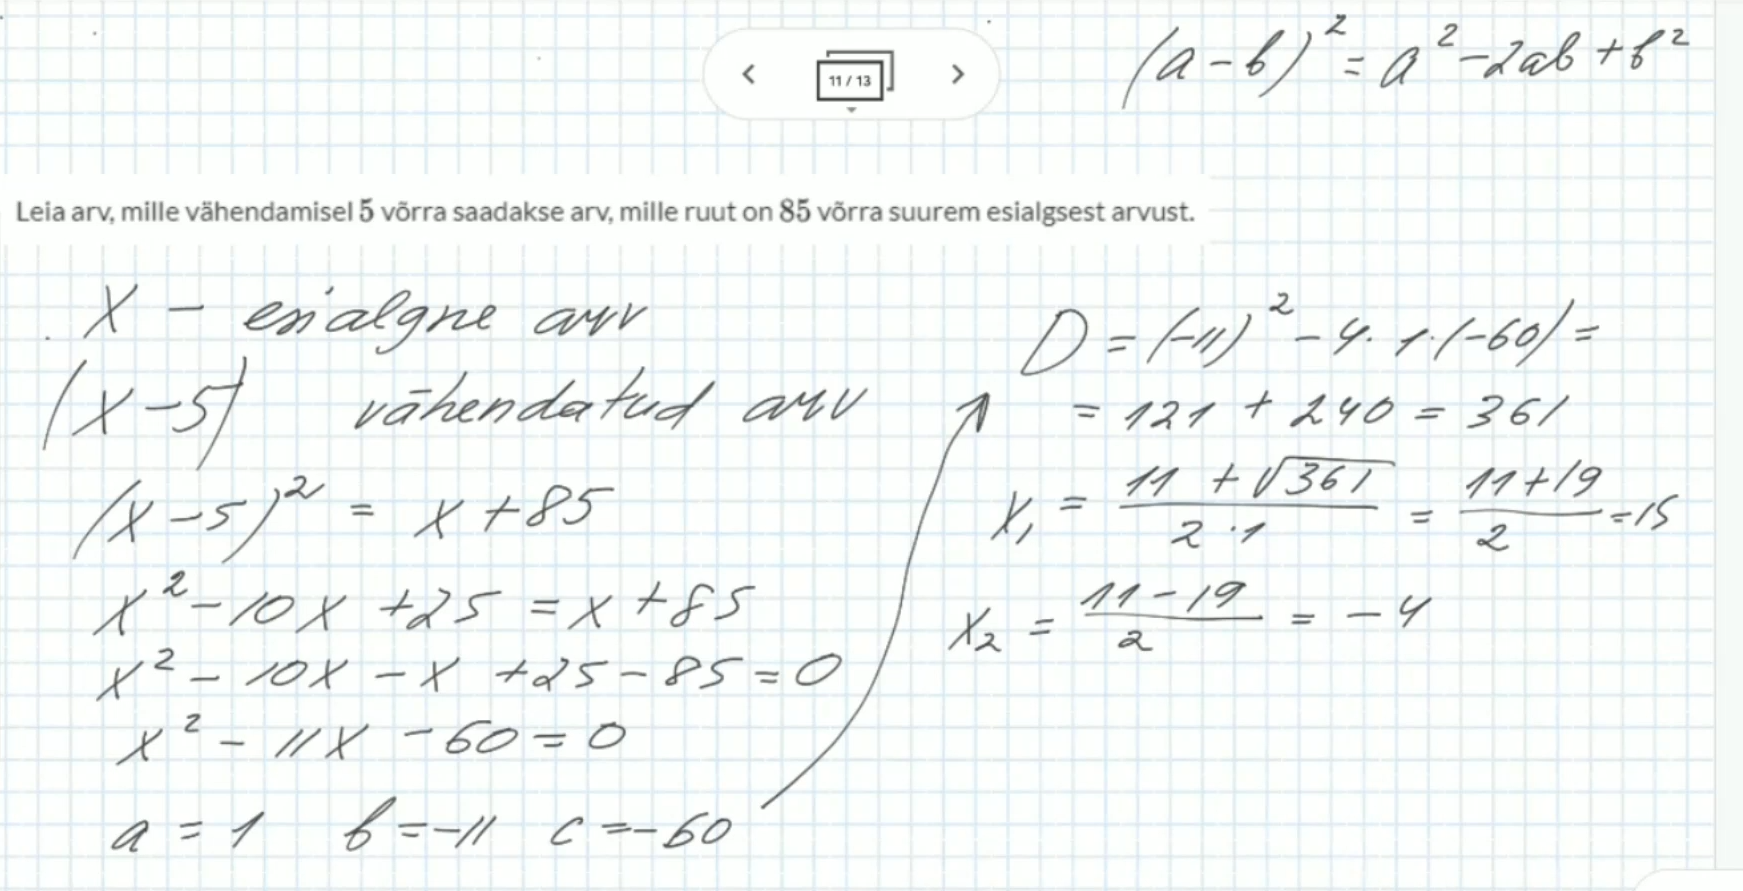 (a-b)² = a² - 2ab + b²
11 / 13
Leia arv, mille vähendamisel 5 võrra saadakse arv, mille ruut on 85 võrra suurem esialgsest arvust.
X - esialgne arv
(x-5) vähendatud arv
(x-5)² = x + 85
x² - 10x + 25 = x + 85
x² - 10x - x + 25 - 85 = 0
x² - 11x - 60 = 0
a = 1 b = -11 c = -60
D = (-11)² - 4 · 1 · (-60) =
= 121 + 240 = 361
X₁ = (11 + √361)/(2 · 1) = (11+19)/2 = 15
X₂ = (11 - 19)/2 = -4